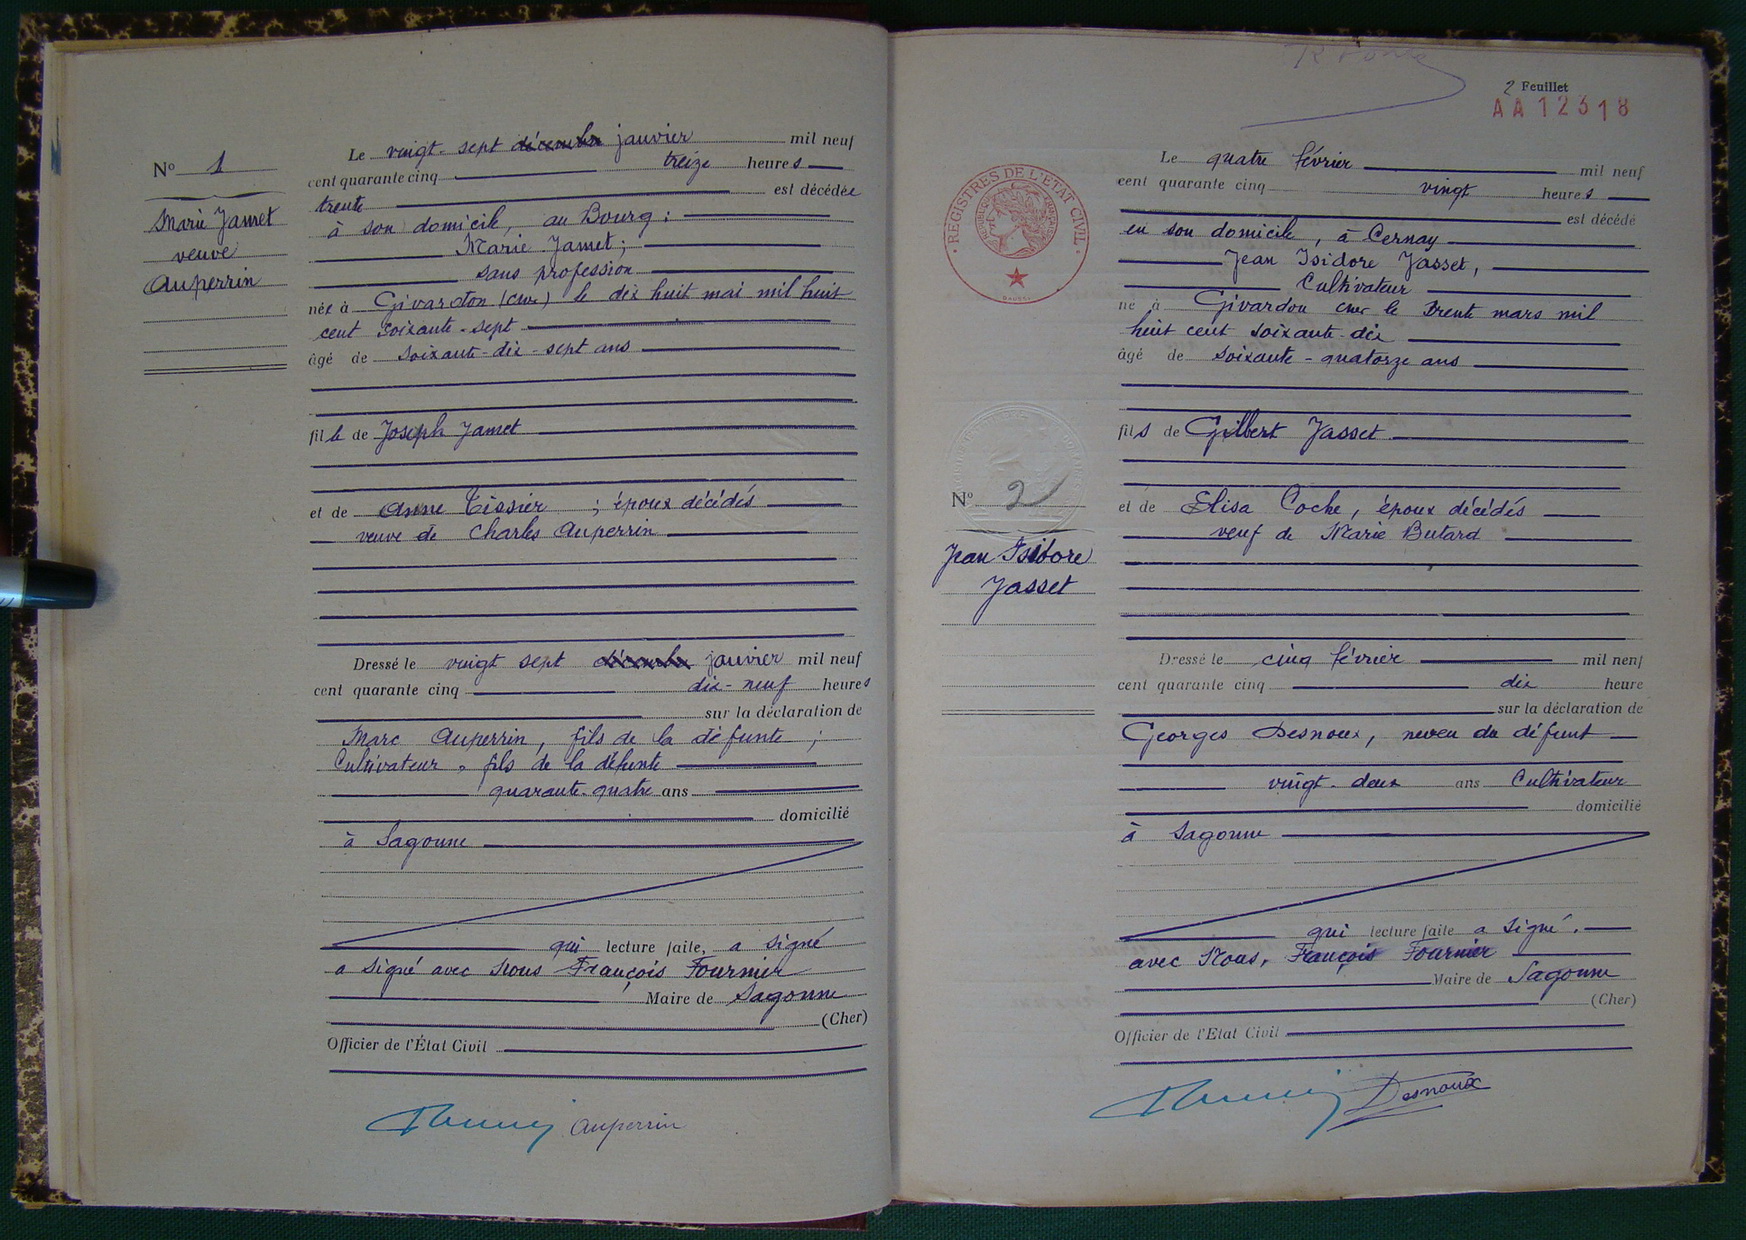 Nº 1
Marie Jamet
veuve
Auperrin
Le vingt-sept décembre janvier mil neuf
cent quarante cinq treize heures
trente est décédée
à son domicile, au Bourg :
Marie Jamet ;
sans profession
née à Givardon (Cher) le dix huit mai mil huit
cent soixante-sept
âgé de soixante-dix-sept ans
fille de Joseph Jamet
et de Anne Tissier ; époux décédés
veuve de Charles Auperrin
Dressé le vingt sept décembre janvier mil neuf
cent quarante cinq dix-neuf heures
sur la déclaration de
Marc Auperrin, fils de la défunte ;
Cultivateur, fils de la défunte
quarante-quatre ans
domicilié
à Sagonne
qui lecture faite, a signé
a signé avec Nous François Fournier
Maire de Sagonne
(Cher)
Officier de l'État Civil
Auperrin
2 Feuillet
AA 12318
REGISTRES DE L'ETAT CIVIL
Nº 2
Jean Isidore
Jasset
Le quatre février mil neuf
cent quarante cinq vingt heures
est décédé
en son domicile, à Cernay
Jean Isidore Jasset,
Cultivateur
né à Givardon Cher le trente mars mil
huit cent soixante-dix
âgé de soixante-quatorze ans
fils de Gilbert Jasset
et de Elisa Coche, époux décédés
veuf de Marie Butard
Dressé le cinq février mil neuf
cent quarante cinq dix heure
sur la déclaration de
Georges Desnoux, neveu du défunt
vingt-deux ans Cultivateur
domicilié
à Sagonne
qui lecture faite a signé.
avec Nous, François Fournier
Maire de Sagonne
(Cher)
Officier de l'Etat Civil
Desnoux